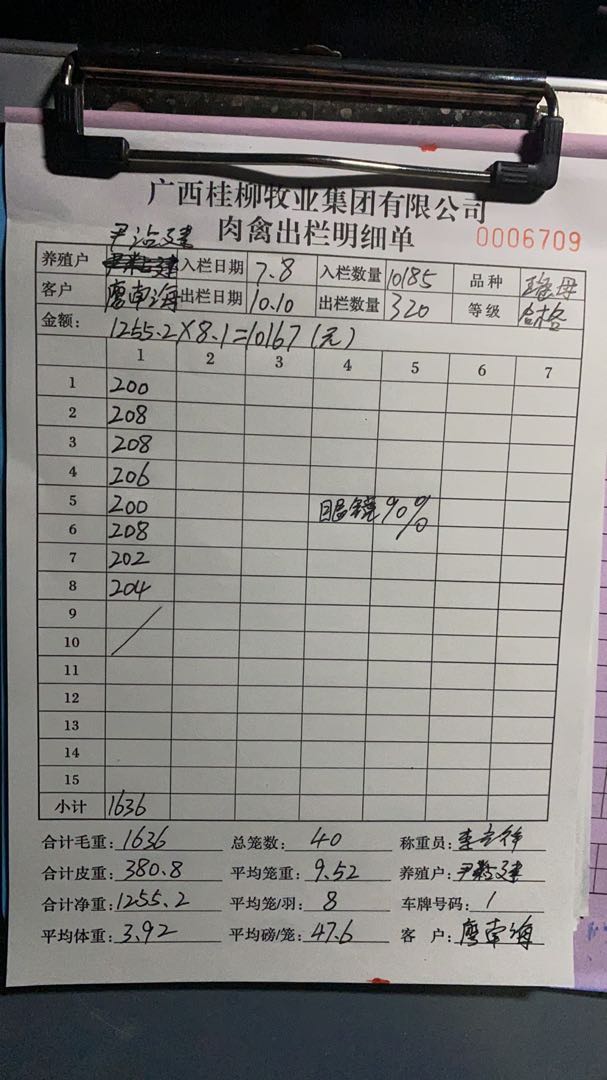 广西桂柳牧业集团有限公司
肉禽出栏明细单 0006709
养殖户 入栏日期 7.8 入栏数量 10185 品种
客户 廖南海 出栏日期 10.10 出栏数量 320 等级 合格
金额: 1255.2×8.1=10167(元)
1 2 3 4 5 6 7
1 200
2 208
3 208
4 206
5 200 眼镜90%
6 208
7 202
8 204
9
10
11
12
13
14
15
小计 1636
合计毛重: 1636 总笼数: 40 称重员:
合计皮重: 380.8 平均笼重: 9.52 养殖户:
合计净重: 1255.2 平均笼/羽: 8 车牌号码: 1
平均体重: 3.92 平均磅/笼: 47.6 客户: 廖南海